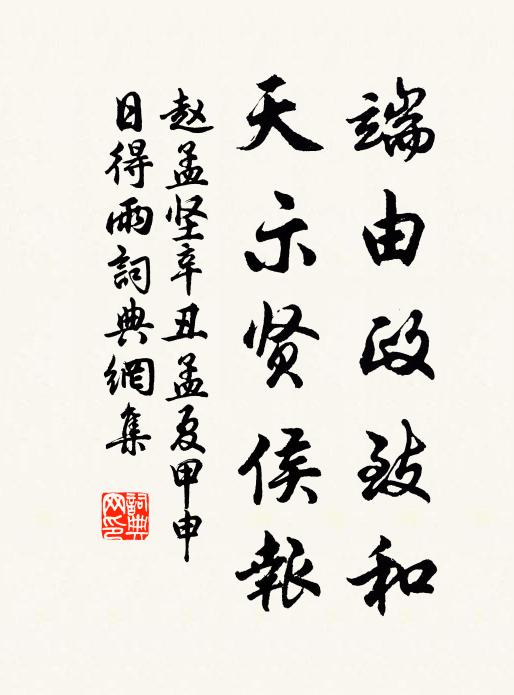 端由政致和
天示贤侯報
赵孟坚辛丑孟夏甲申
日得雨詞典網集
詞典
网印